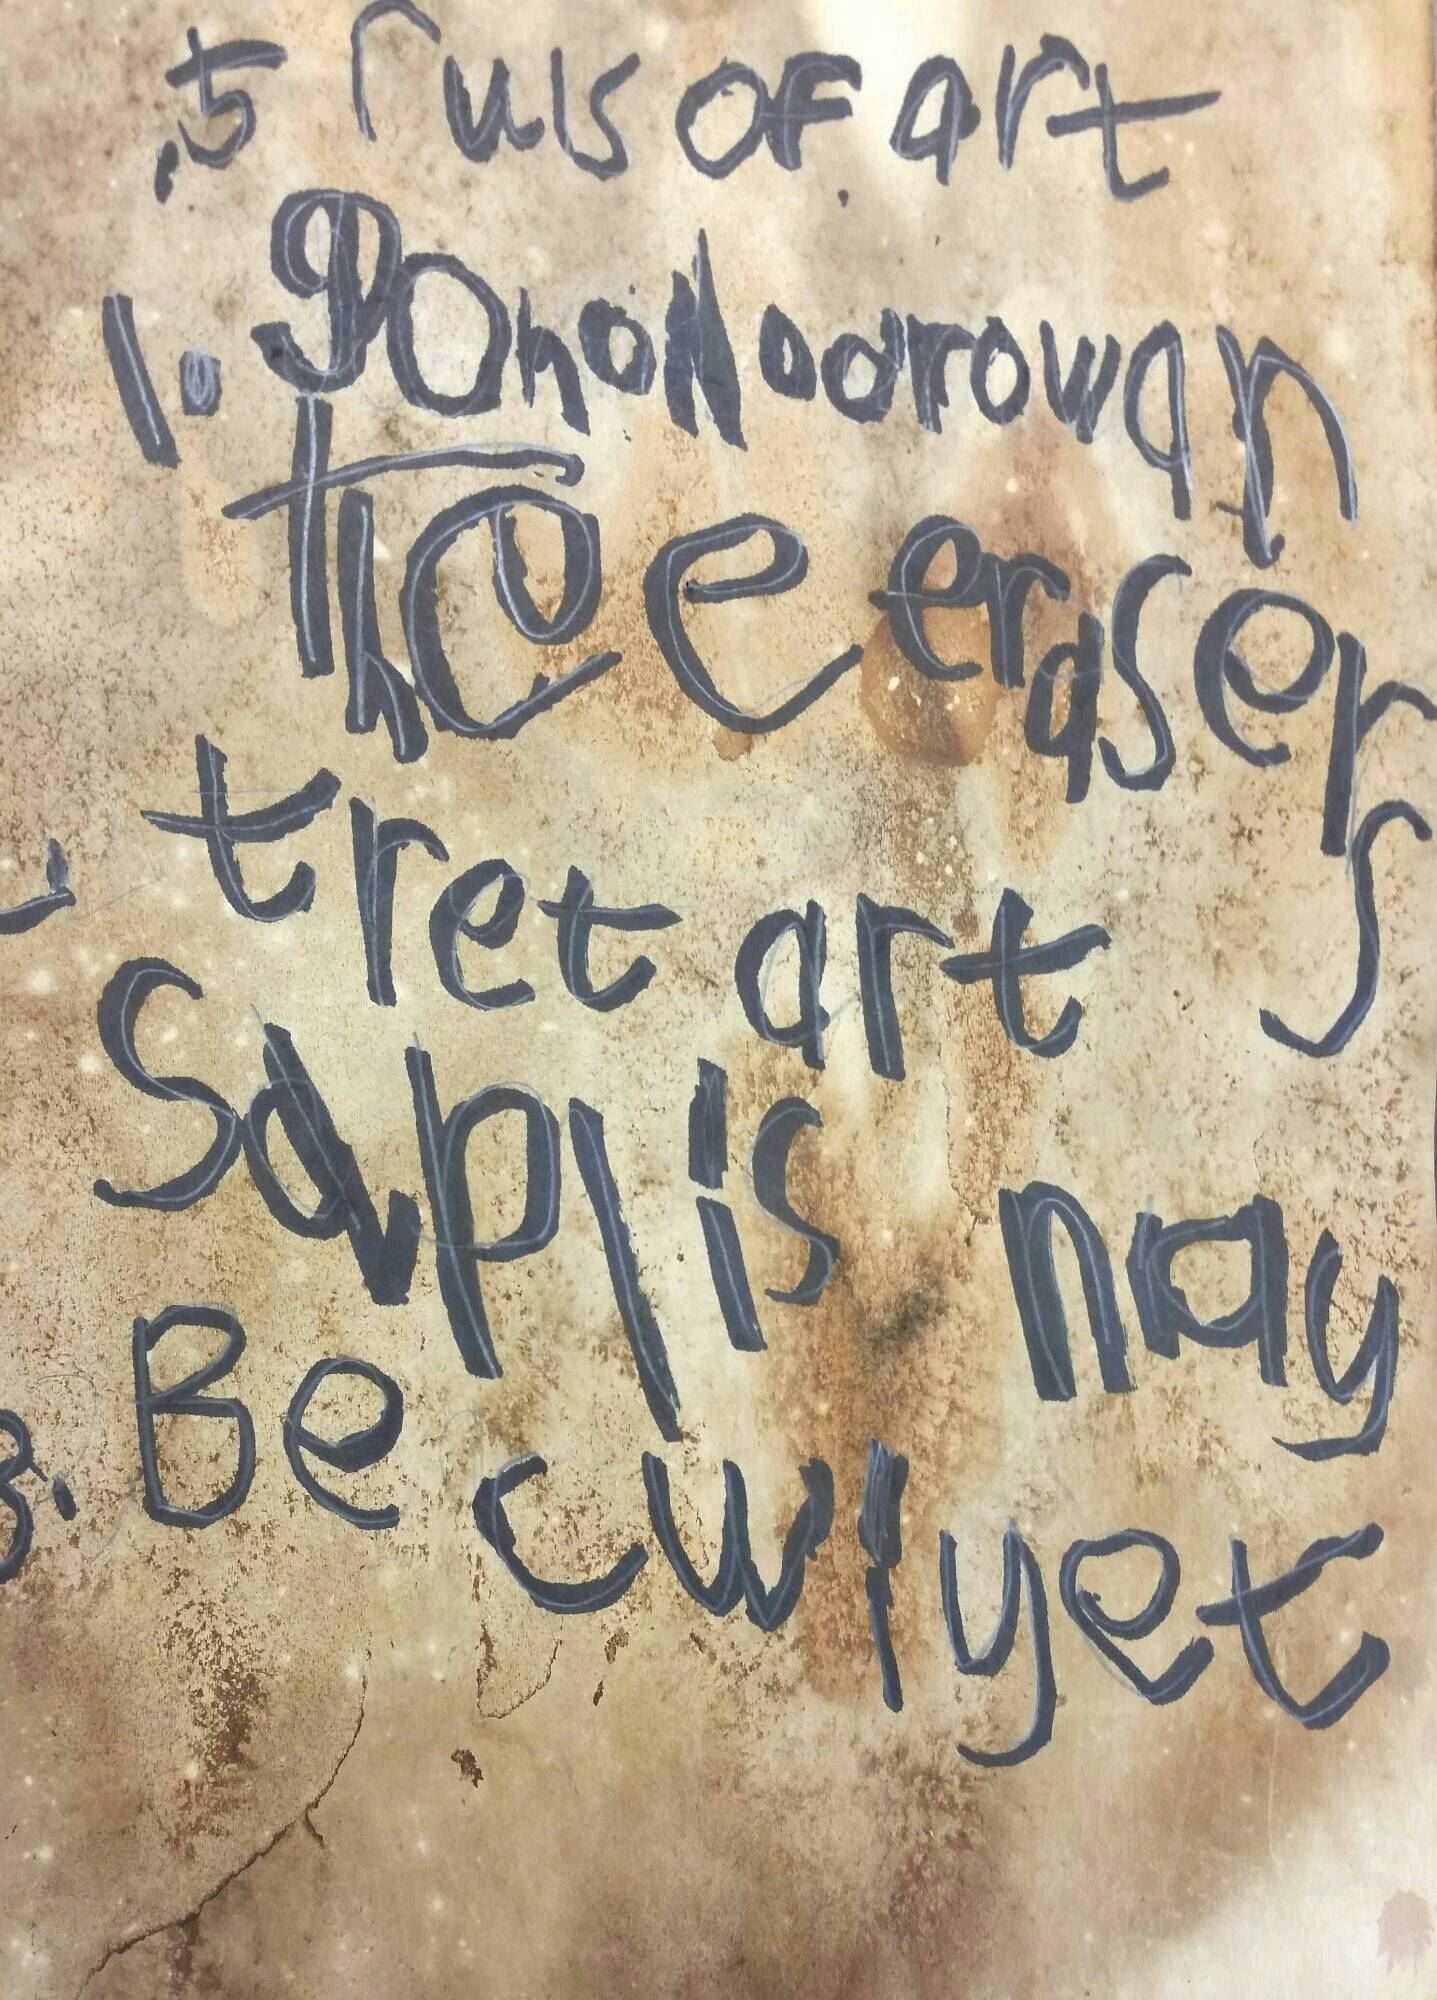 .5 ruls of art
1. Do not drow an
the e erasers
tret art
Saplis nay
3. Be cwiyet